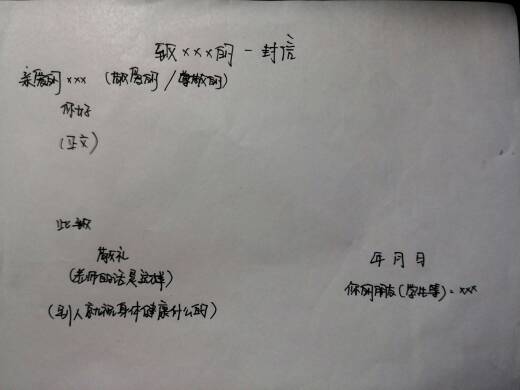 致×××的一封信
亲爱的×××（敬爱的/尊敬的）
你好
（正文）
此致
敬礼
（老师的话是这样）
（别人就祝身体健康什么的）
年月日
你的朋友（学生等）：×××